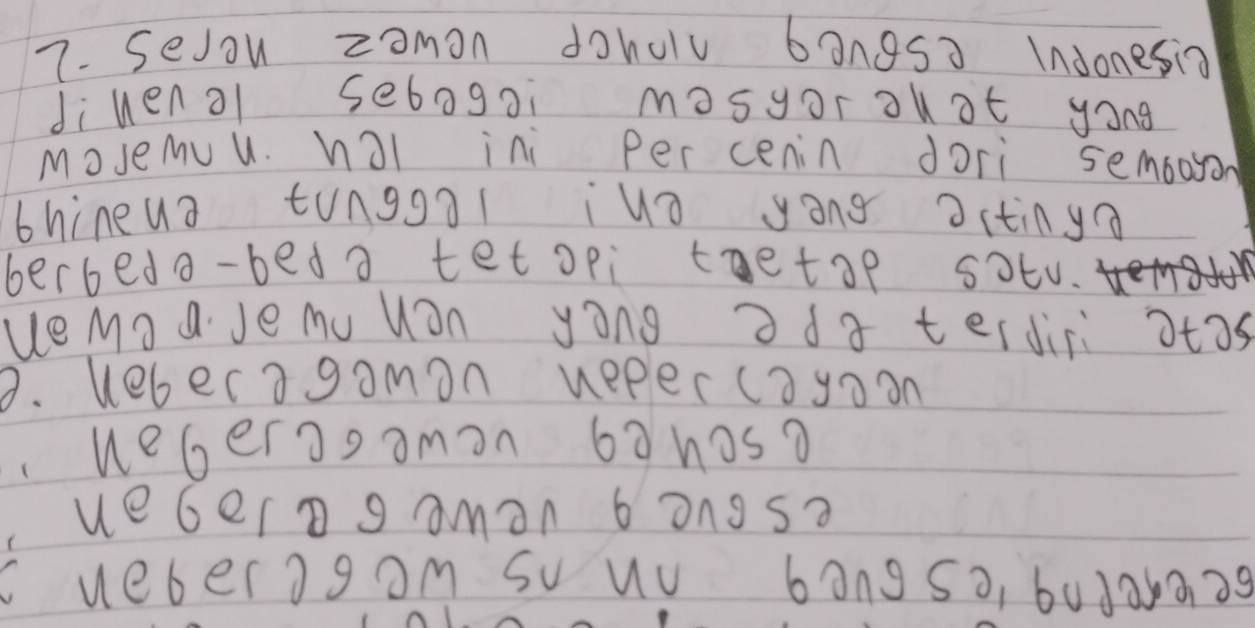 7. Sejak zaman dahulu bangsa Indonesia
dikenal sebagai masyarakat yang
majemuk. hal ini Percenin dari semboyan
bhineka tunggal ika yang artinya
berbeda-beda tetapi taetap satu.
kemajemukan yang ada terdiri atas
a. keberagaman kepercayaan
keberagaman bahasa
keberagaman bangsa
keberagam suku bangsa, budaya, ag